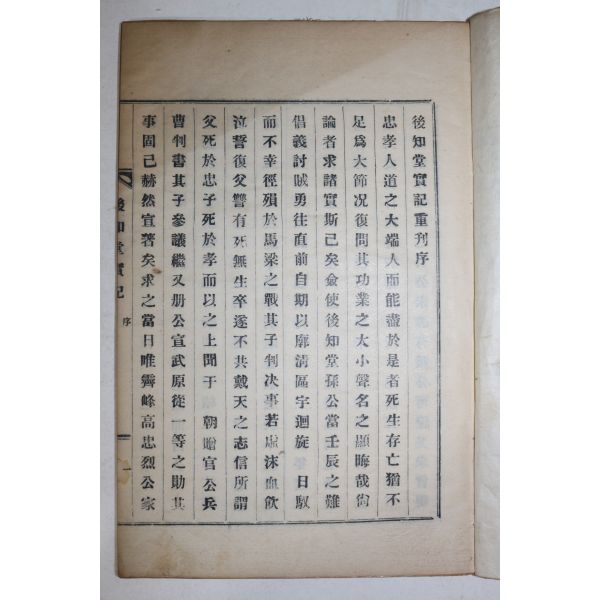 後知堂實記重刋序
忠孝人道之大端人而能盡於是者死生存亡猶不
足爲大節况復問其功業之大小聲名之顯晦哉尙
論者求諸實斯已矣僉使後知堂孫公當壬辰之難
倡義討賊勇往直前自期以廓淸區宇迴旋 日馭
而不幸徑殞於馬梁之戰其子判决事若虛沫血飮
泣誓復父讐有死無生卒遂不共戴天之志信所謂
父死於忠子死於孝而以之上聞于 朝贈官公兵
曹判書其子參議繼又册公宣武原從一等之勛其
事固已赫然宣著矣求之當日唯霽峰高忠烈公家
後知堂實記
序
一